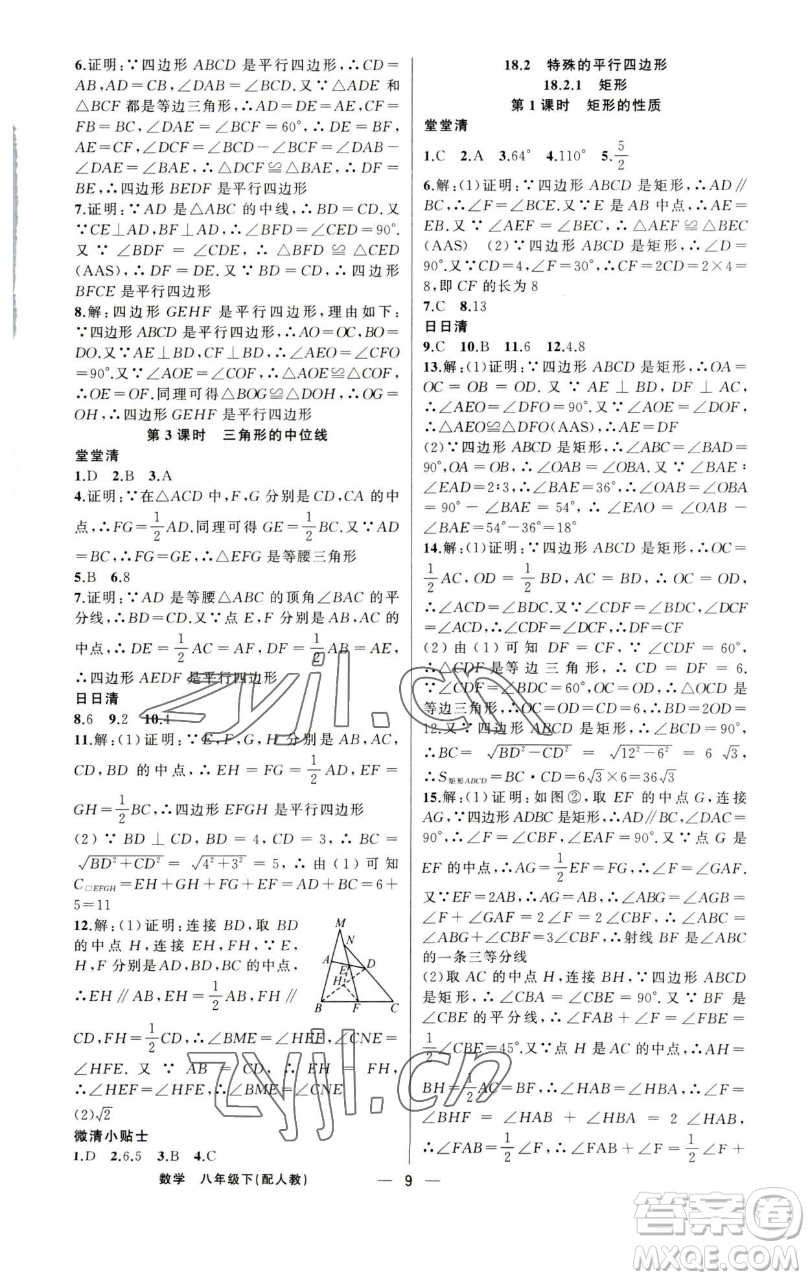 6.证明:∵四边形 ABCD 是平行四边形,∴CD=
AB,AD=CB,∠DAB=∠BCD.又∵△ADE 和
△BCF 都是等边三角形,∴AD=DE=AE,CF=
FB=BC,∠DAE=∠BCF=60°,∴DE=BF,
AE=CF,∠DCF=∠BCD-∠BCF=∠DAB-
∠DAE=∠BAE,∴△DCF≌△BAE,∴DF=
BE,∴四边形 BEDF 是平行四边形
7.证明:∵AD 是△ABC 的中线,∴BD=CD.又
∵CE⊥AD,BF⊥AD,∴∠BFD=∠CED=90°.
又∵∠BDF=∠CDE,∴△BFD≌△CED
(AAS),∴DF=DE.又∵BD=CD,∴四边形
BFCE 是平行四边形
8.解:四边形 GEHF 是平行四边形,理由如下:
∵四边形 ABCD 是平行四边形,∴AO=OC,BO=
DO.又∵AF⊥BC,CE⊥AD,∴∠AEO=∠CFO
=90°.又∵∠AOE=∠COF,∴△AOE≌△COF,∴
OE=OF.同理可得△BOG≌△DOH,∴OG=
OH,∴四边形 GEHF 是平行四边形
第 3 课时 三角形的中位线
堂堂清
1.D 2.B 3.A
4.证明:∵在△ACD 中,F,G 分别是 CD,CA 的中
点,∴FG=1/2AD.同理可得 GE=1/2BC.又∵AD
=BC,∴FG=GE,∴△EFG 是等腰三角形
5.B 6.8
7.证明:∵AD 是等腰△ABC 的顶角∠BAC 的平
分线,∴BD=CD.又∵点 E,F 分别是 AB,AC 的
中点,∴DE=1/2AC=AF,DF=1/2AB=AE,
∴四边形 AEDF 是平行四边形
日日清
8.6 9.2 10.4
11.解:(1)证明:∵E,F,G,H 分别是 AB,AC,
CD,BD 的中点,∴EH=FG=1/2AD,EF=
GH=1/2BC,∴四边形 EFGH 是平行四边形
(2)∵BD⊥CD,BD=4,CD=3,∴BC=
√(BD²+CD²)=√(4²+3²)=5,∴由(1)可知
C▱EFGH=EH+GH+FG+EF=AD+BC=6+
5=11
12.解:(1)证明:连接 BD,取 BD
的中点 H,连接 EH,FH,∵E,
F,H 分别是 AD,BC,BD 的中点,
∴EH∥AB,EH=1/2AB,FH∥
CD,FH=1/2CD,∴∠BME=∠HEF,∠CNE=
∠HFE.又∵AB=CD,∴EH=FH,
∴∠HEF=∠HFE,∴∠BME=∠CNE
(2)√2
微清小贴士
1.D 2.6.5 3.B 4.C
M
N
A
E
D
H
B
F
C
18.2 特殊的平行四边形
18.2.1 矩形
第 1 课时 矩形的性质
堂堂清
1.C 2.A 3.64° 4.110° 5.5/2
6.解:(1)证明:∵四边形 ABCD 是矩形,∴AD∥
BC,∴∠F=∠BCE.又∵E 是 AB 中点,∴AE=
EB.又∵∠AEF=∠BEC,∴△AEF≌△BEC
(AAS) (2)∵四边形 ABCD 是矩形,∴∠D=
90°.又∵CD=4,∠F=30°,∴CF=2CD=2×4=
8,即 CF 的长为 8
7.C 8.13
日日清
9.C 10.B 11.6 12.4.8
13.解:(1)证明:∵四边形 ABCD 是矩形,∴OA=
OC=OB=OD.又∵AE⊥BD,DF⊥AC,
∴∠AEO=∠DFO=90°.又∵∠AOE=∠DOF,
∴△AEO≌△DFO(AAS),∴AE=DF
(2)∵四边形 ABCD 是矩形,∴∠BAD=
90°,OA=OB,∴∠OAB=∠OBA.又∵∠BAE∶
∠EAD=2∶3,∴∠BAE=36°,∴∠OAB=∠OBA
=90°-∠BAE=54°,∴∠EAO=∠OAB-
∠BAE=54°-36°=18°
14.解:(1)证明:∵四边形 ABCD 是矩形,∴OC=
1/2AC,OD=1/2BD,AC=BD,∴OC=OD,
∴∠ACD=∠BDC.又∵∠CDF=∠BDC,∠DCF
=∠ACD,∴∠CDF=∠DCF,∴DF=CF
(2)由(1)可知 DF=CF,∵∠CDF=60°,
∴△CDF 是等边三角形,∴CD=DF=6.
∵∠CDF=∠BDC=60°,OC=OD,∴△OCD 是
等边三角形,∴OC=OD=CD=6,∴BD=2OD=
12.又∵四边形 ABCD 是矩形,∴∠BCD=90°,
∴BC=√(BD²-CD²)=√(12²-6²)=6√3,
∴S矩形ABCD=BC·CD=6√3×6=36√3
15.解:(1)证明:如图②,取 EF 的中点 G,连接
AG,∵四边形 ADBC 是矩形,∴AD∥BC,∠DAC=
90°,∴∠F=∠CBF,∠EAF=90°.又∵点 G 是
EF 的中点,∴AG=1/2EF=FG,∴∠F=∠GAF.又
∵EF=2AB,∴AG=AB,∴∠ABG=∠AGB=
∠F+∠GAF=2∠F=2∠CBF,∴∠ABC=
∠ABG+∠CBF=3∠CBF,∴射线 BF 是∠ABC
的一条三等分线
(2)取 AC 的中点 H,连接 BH,∵四边形 ABCD
是矩形,∴∠ABC=∠CBE=90°.又∵BF 是
∠CBE 的平分线,∴∠BAF+∠F=∠FBE=
1/2∠CBE=45°.又∵点 H 是 AC 的中点,∴AH=
BH=1/2AC=BF,∴∠HAB=∠HBA,∠F=
∠BHF=∠HAB+∠HBA=2∠HAB,
∴∠HAB=1/2∠F,∴∠BAF+∠F=1/2∠F+
数学 八年级下(配人教)
— 9 —
zyjl.cn
zyjl.cn
答案圈
MXQE.COM